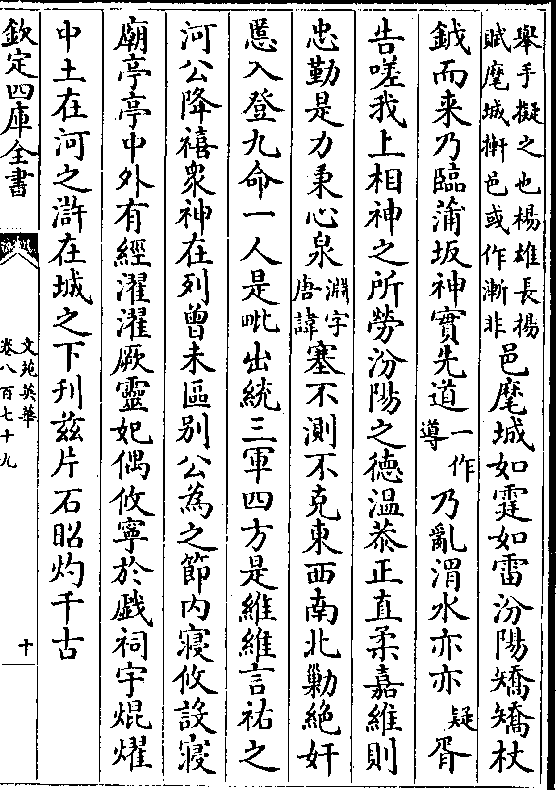 舉手擬之也楊雄長楊
賦麾城㩁邑或作漸非
邑麾城如霆如雷汾陽矯矯杖
鉞而来乃臨蒲坂神實先道一作導乃亂渭水亦亦疑胥
告嗟我上相神之所勞汾陽之德温恭正直柔嘉維則
忠勤是力秉心泉淵字唐諱塞不測不克東西南北勦絶奸
慝入登九命一人是毗出統三軍四方是維維言祐之
河公降禧衆神在列曾未區别公為之節内寝攸設寝
廟亭亭中外有經濯濯厥靈妃偶攸寧於戯祠宇焜燿
中土在河之滸在城之下刋兹片石昭灼千古
欽定四庫全書
文苑英華
卷八百七十九
十